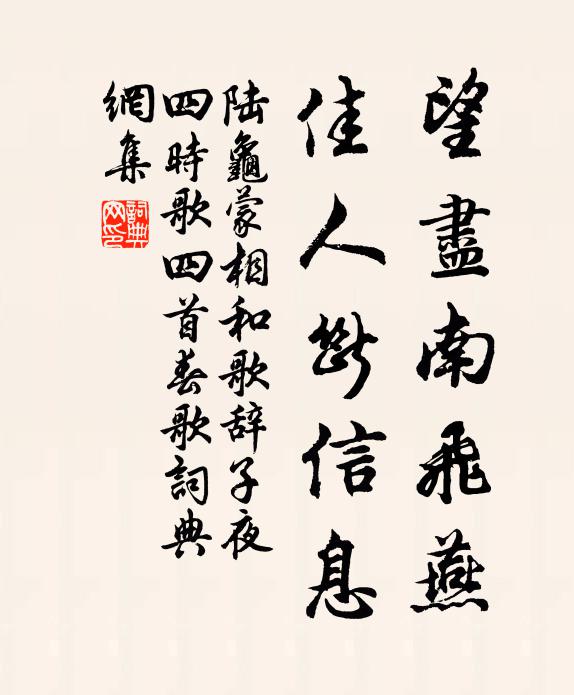 望盡南飛燕
佳人斷信息
陆龜蒙相和歌辞子夜
四時歌四首春歌詞典
網集
詞典
网印